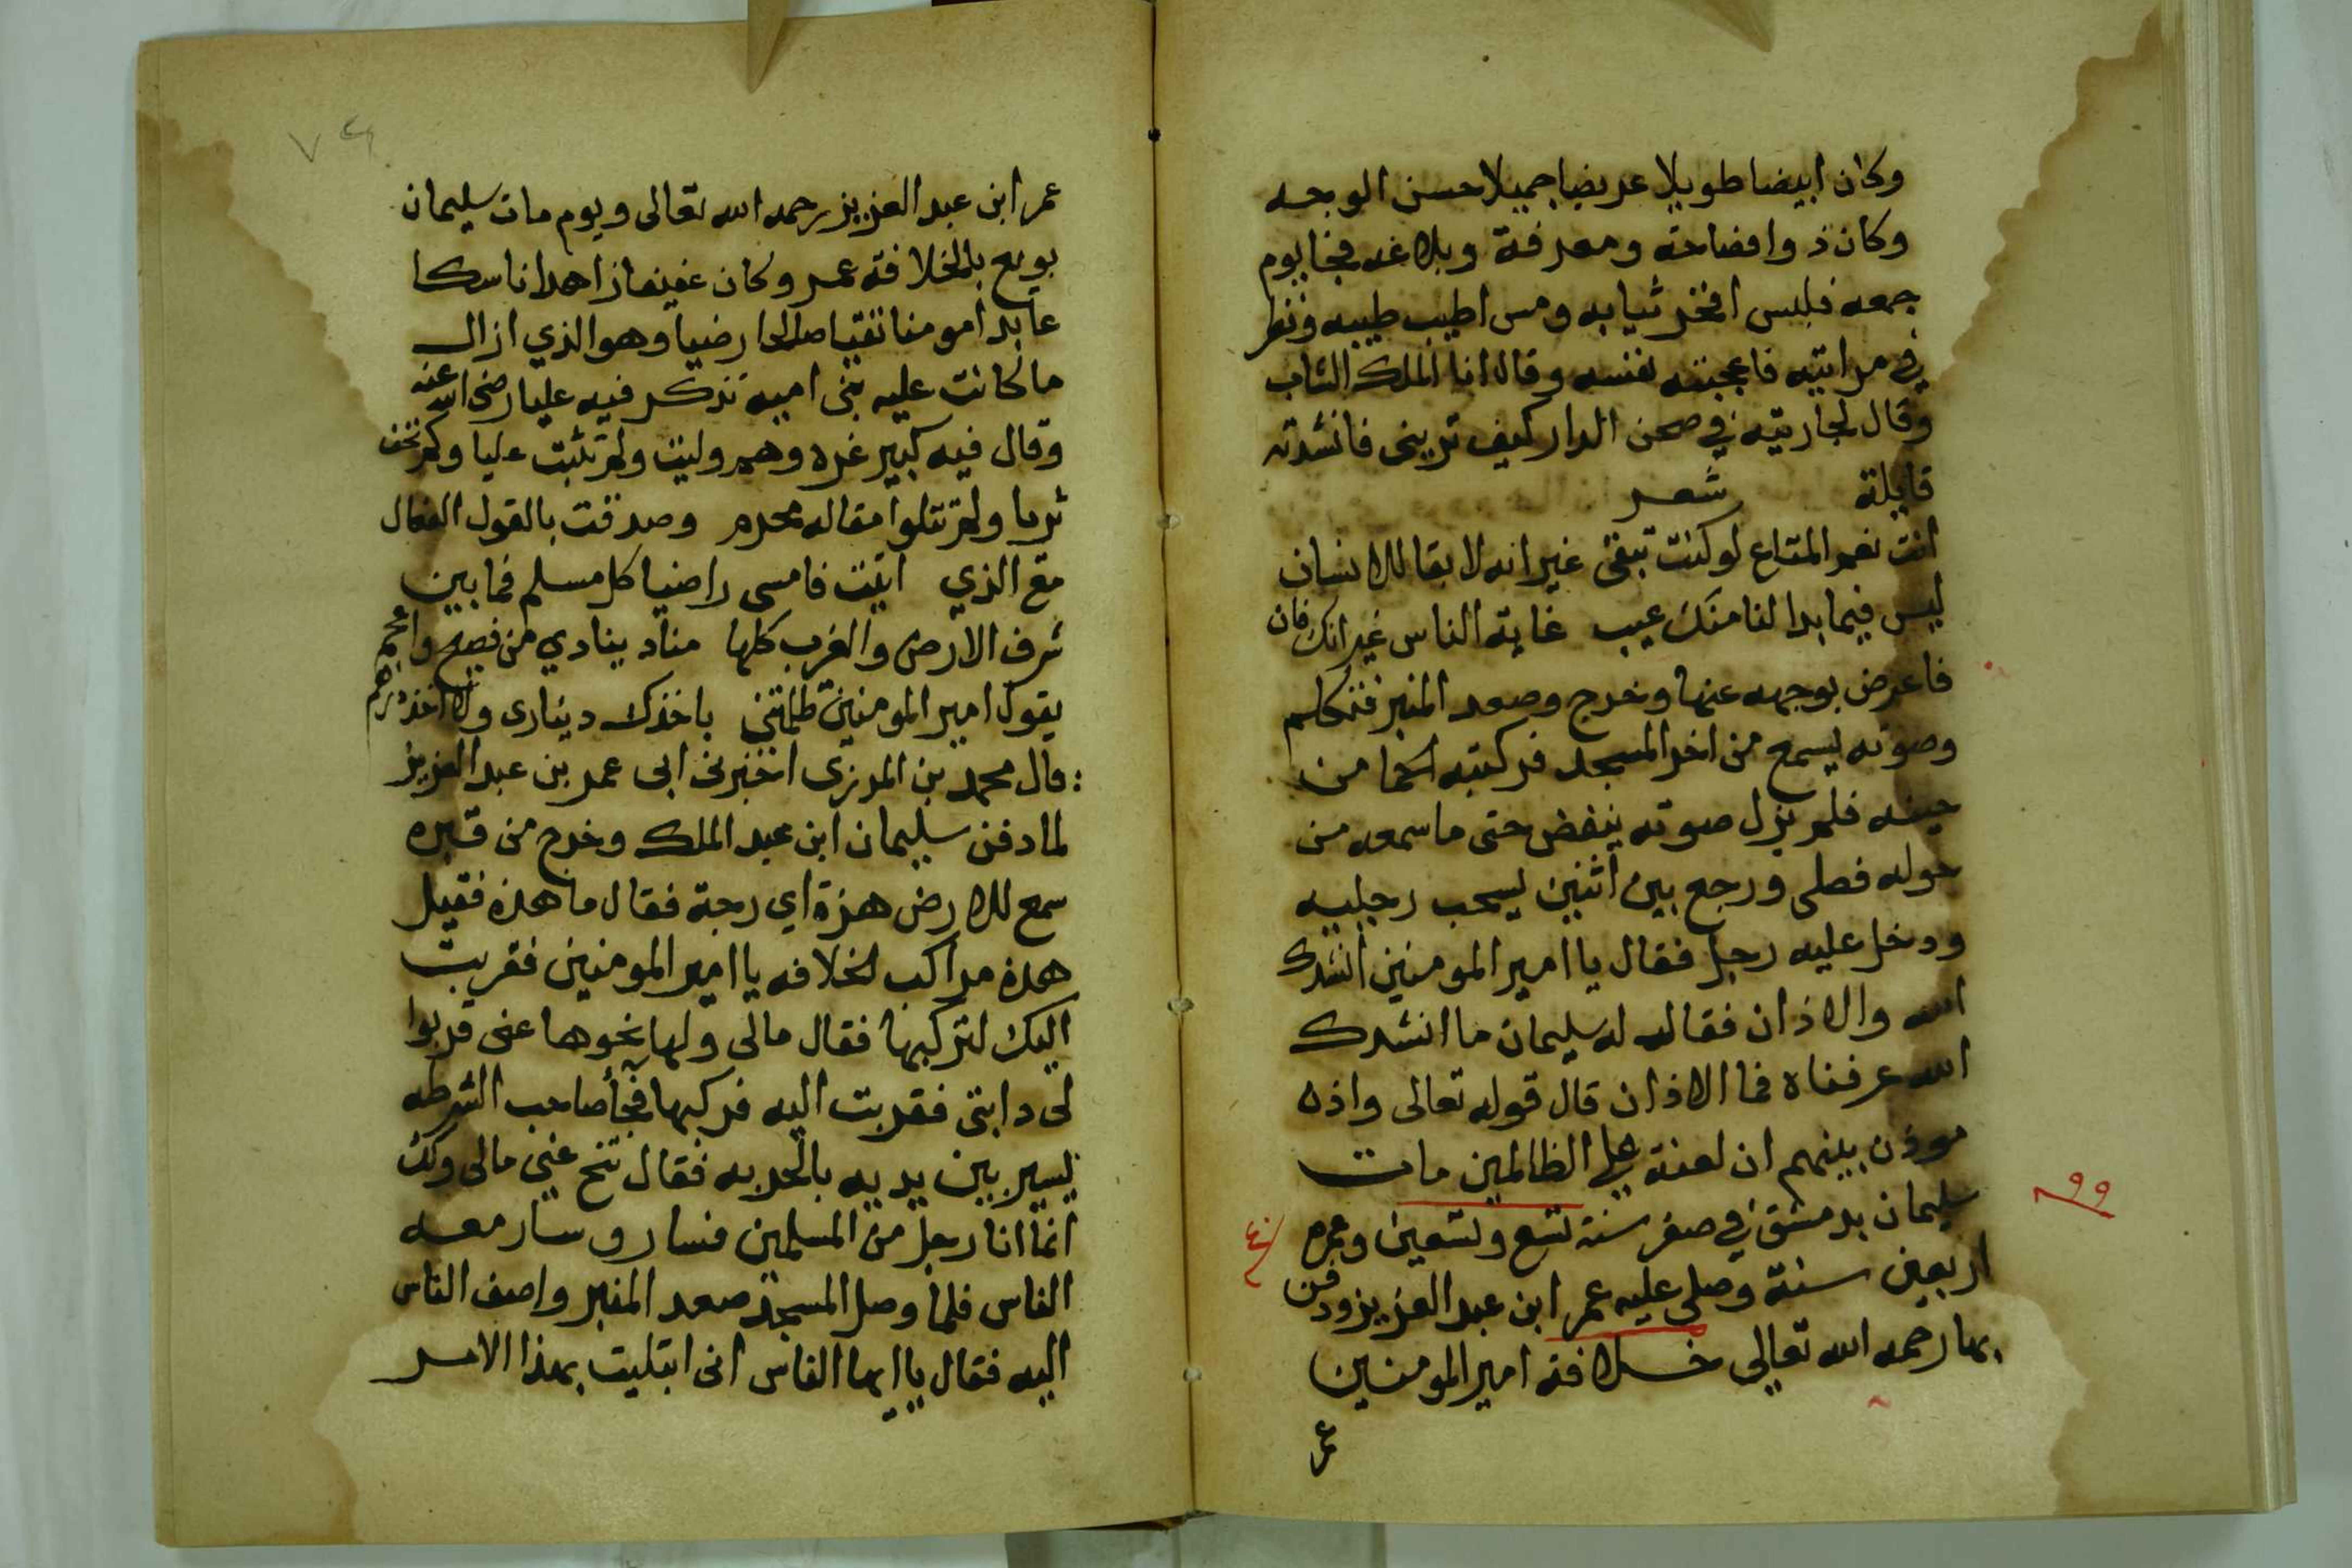 وكان ابيضا طويلا عريضا جميلا حسن الوجه
وكان ذوا فصاحة ومعرفة وبلاغه فجا يوم
جمعه فلبس افخر ثيابه ومس اطيب طيبه ونظر
في مراتيه فاعجبته نفسه وقال انا الملك الشاب
وقال لجاريته في صحن الدار كيف تريني فانشدته
قايلة شعر
انت نعم المتاع لو كنت تبقى غير انه لا بقا للانسان
ليس فيما بدا لنا منك عيب غابة الناس غير انك فان
فاعرض بوجهه عنها وخرج وصعد المنبر فتكلم
وصوته يسمع من اخر المسجد فركبته الحما من
حينه فلم يزل صوته ينغض حتى ما سمعه من
حوله فصلى ورجع بين اثنين يسحب رجليه
ودخل عليه رجل فقال يا امير المومنين انشدك
الله والاذان فقال له سليمان ما انشدك
الله عرفناه فما الاذان قال قوله تعالى واذن
موذن بينهم ان لعنة على الظالمين مات
سليمان بدمشق في صفر سنة تسع وتسعين وعمره
٩٩
٤٠
اربعين سنة وصلى عليه عمر ابن عبد العزيز ودفن
بها رحمه الله تعالى خلافة امير المومنين
عمر
٧٤
عمر ابن عبد العزيز رحمه الله تعالى ويوم مات سليمان
بويع بالخلافة عمر وكان عفيفا زاهدا ناسكا
عابدا مومنا تقيا صالحا رضيا وهو الذي ازال
ما كانت عليه بنى اميه تذكر فيه عليا رضى الله عنه
وقال فيه كبير غره وهم وليت ولم تثبت عليا ولم تخف
ثريا ولم تتلوا مقاله محرم وصدقت بالقول الفعال
مع الذي اتيت فامسى راضيا كل مسلم فما بين
شرف الارض والغرب كلها مناد ينادي من فصيح واعجم
يقول امير المومنين ظلمتني باخذك دينارى ولا اخذ درهم
قال محمد بن المرزى اخبرنى ابى عمر بن عبد العزيز
لما دفن سليمان ابن عبد الملك وخرج من قبره
سمع للارض هزة اي رجة فقال ما هذه فقيل
هذه مراكب الخلافه يا امير المومنين فقربت
اليك لتركبها فقال مالى ولها نحوها عنى قربوا
لى دابتى فقربت اليه فركبها فجأ صاحب الشرطه
يسير بين يديه بالحربه فقال تنح عني مالى ولك
انما انا رجل من المسلمين فسار وسار معه
الناس فلما وصل المسجد صعد المنبر واصف الناس
اليه فقال يا ايها الناس انى ابتليت بهذا الامر